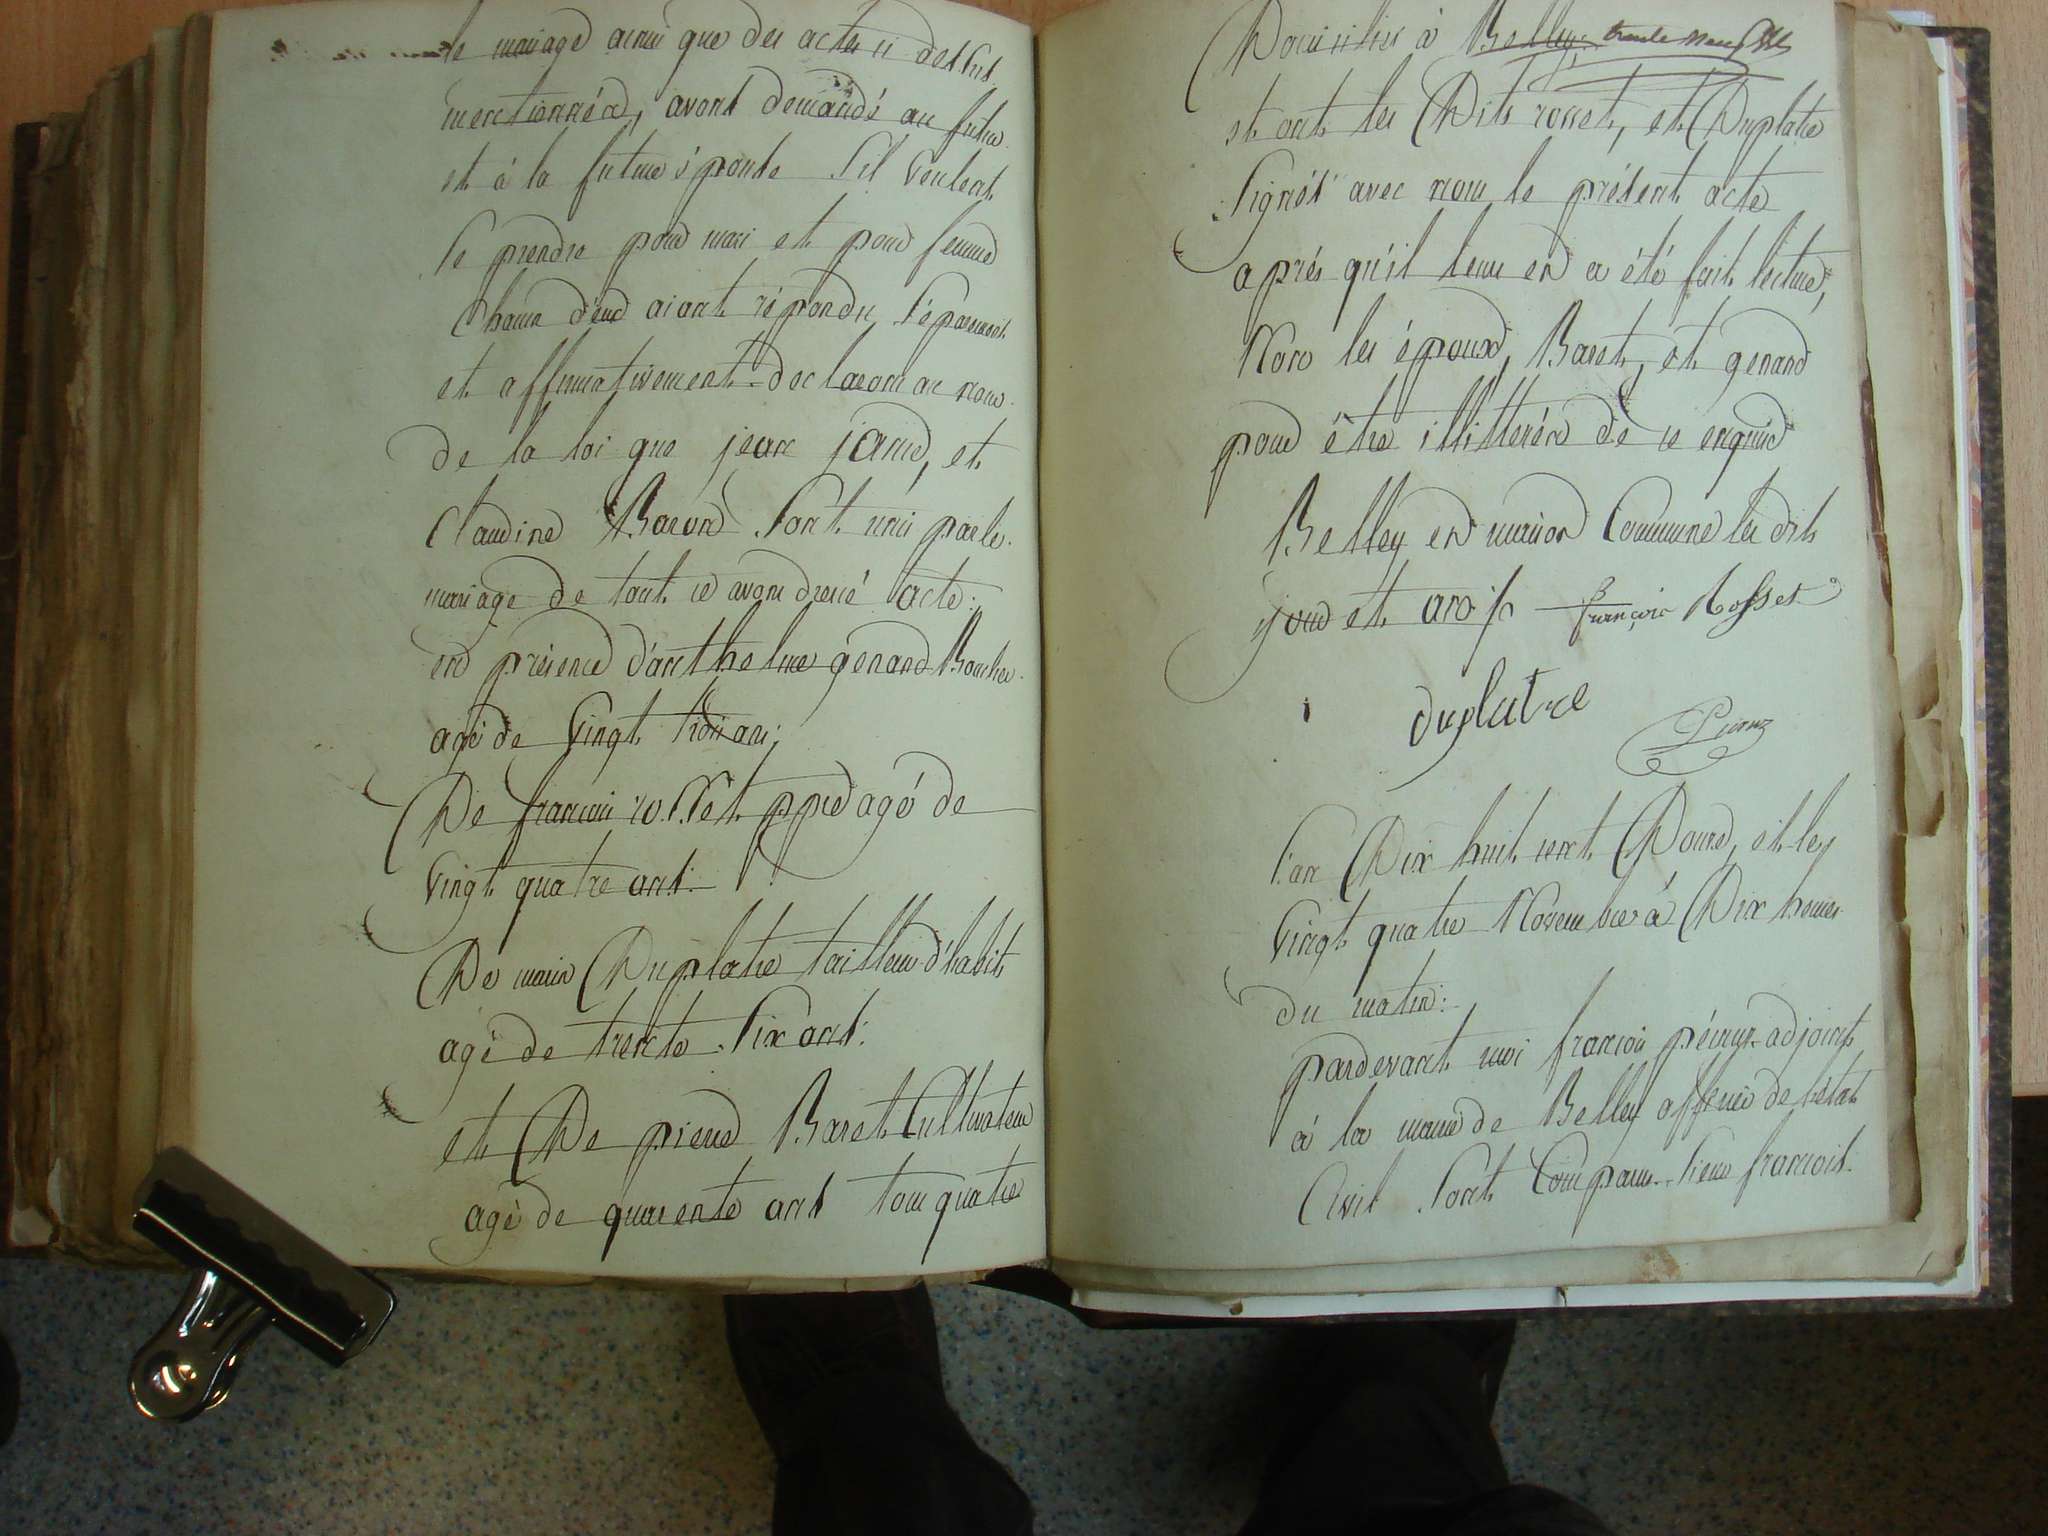 le mariage ainsi que des actes ci dessus
mentionnés, avons demandé au futur
et à la future épouse s'il veulent
se prendre pour mari et pour femme
Chacun d'eux aiant répondu séparement
et affirmativement declarons au nom
de la loi que jean janid, et
Claudine Barond sont unis par le
mariage de tout ce avons dressé acte:
en présence d'anthelme genand Boucher
agé de vingt trois ans;
De francois rosset ppre agé de
vingt quatre ans:
De marin Duplatre tailleur d'habits
agé de trente six ans:
et De pierre Baret Cultivateur
agé de quarente ans tous quatre
Domicilies à Belley: trente neuf
et ont les Dits rosset, et Duplatre
signés avec nous le présent acte
après qu'il leur en a été fait lecture,
Non les époux, Baret, et genand
pour être illitterés de ce enquis
Belley en maison Commune les dits
jour et an françois Rosset
duplatre
l'an Dix huit cent Douze, et le
vingt quatre Novembre à Dix heures
du matin:
pardevant moi francois adjoint
à la mairie de Belley officier de l'état
Civil sont Comparus sieur francois